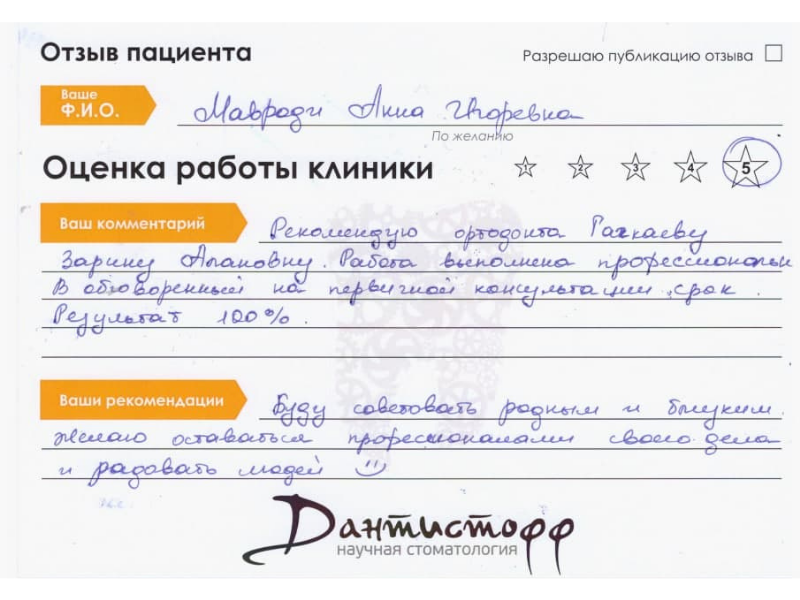 Отзыв пациента
Разрешаю публикацию отзыва
Ваше
Ф.И.О.
Мавроди Анна Игоревна
По желанию
Оценка работы клиники
1 2 3 4 5
Ваш комментарий
Рекомендую ортодонта
Зарину Алановну. Работа выполнена профессиональн
В обговоренный на первичной консультации срок.
Результат 100%.
Ваши рекомендации
Буду советовать родным и близким.
Желаю оставаться професионалами своего дела
и радовать людей
Дантистофф
научная стоматология